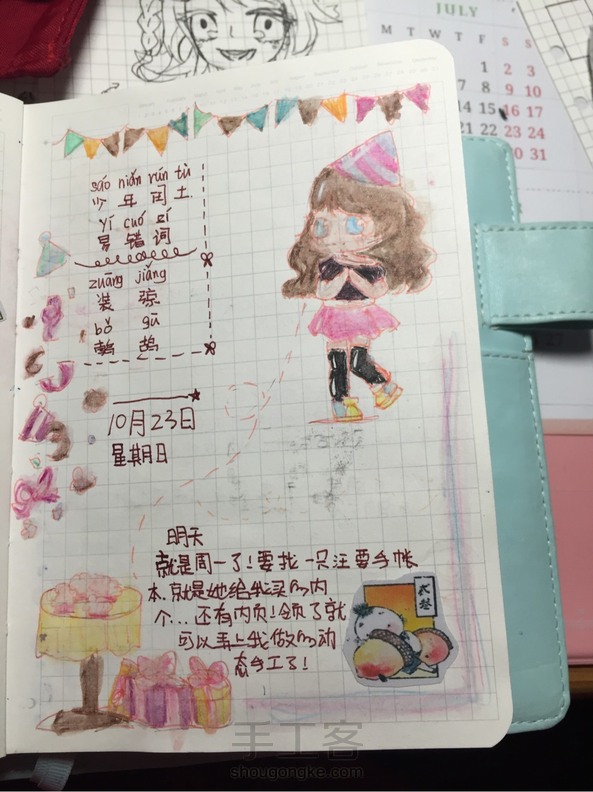 JULY
M T W T F S S
1 2 3
8 9 10
15 16 17
21 22 23 24
30 31
sáo nián rún tǔ
少年闰土
Yí cuó cí
易错词
zuāng jiǎng
装弶
bǒ gū
鹁鸪
10月23日
星期日
明天
就是周一了!要找一只汪要手帐
本.就是她给我买的内
个...还有内页!领了就
可以弄上我做的动
态手工了!
手工客
shougongke.com